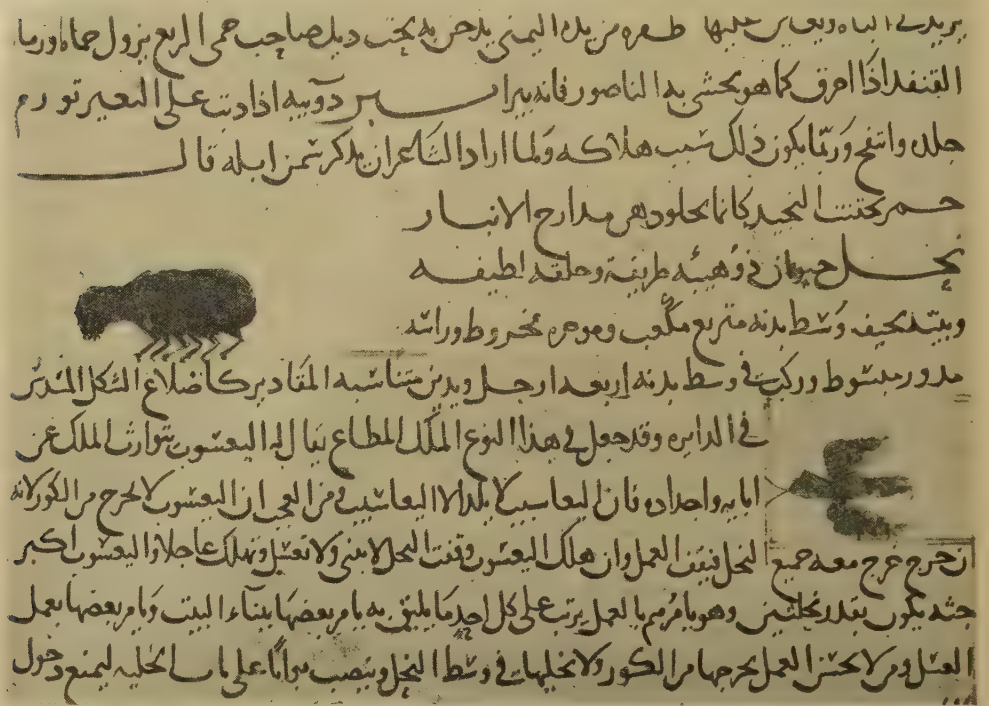 عليها ظفره من يده اليمنى يدخن به تحت ذيل صاحب حمى الربع يزول حماه وربما
القنفد اذا احرق كما هو يحشى به الناصور فانه يبرا نبر دويبه اذا دبت على البعير تورم
جلده وانتفخ وربما يكون ذلك سبب هلاكه ولما اراد الشاعر ان يذكر سمن ابله قال
حمر النجيد كانما بجلودهن مدارج الانبار
نحل حيوان ذو هيئه ظريفة وخلقه لطيفه
وبنيه نحيف وسط بدنه مربع مكعب وموخره مخروط وراسه
مدور مبسوط وركب في وسط بدنه اربعه ارجل ويدين متناسبه المقادير كاضلاع الشكل المسدس
في الدايره وقد جعل في هذا النوع الملك المطاع يقال له اليعسوب يتوارث الملك عن
ابايه واجداده فان اليعاسيب لا يلد الا اليعاسيب ومن العجب ان اليعسوب لا يخرج من الكور لانه
ان خرج خرج معه جميع النحل فيقف العمل وان هلك اليعسوب وقفت النحل لا تبنى ولا تعسل وتهلك عاجلا واليعسوب اكبر
جثه يكون بقدر نحلتين وهو يامرهم بالعمل يرتب على كل احد ما يليق به يامر بعضها ببناء البيت ويامر بعضها بعمل
العسل ومن لا يحسن العمل يخرجها من الكور ولا يخليها في وسط النحل وينصب بوابا على باب الخليه ليمنع دخول